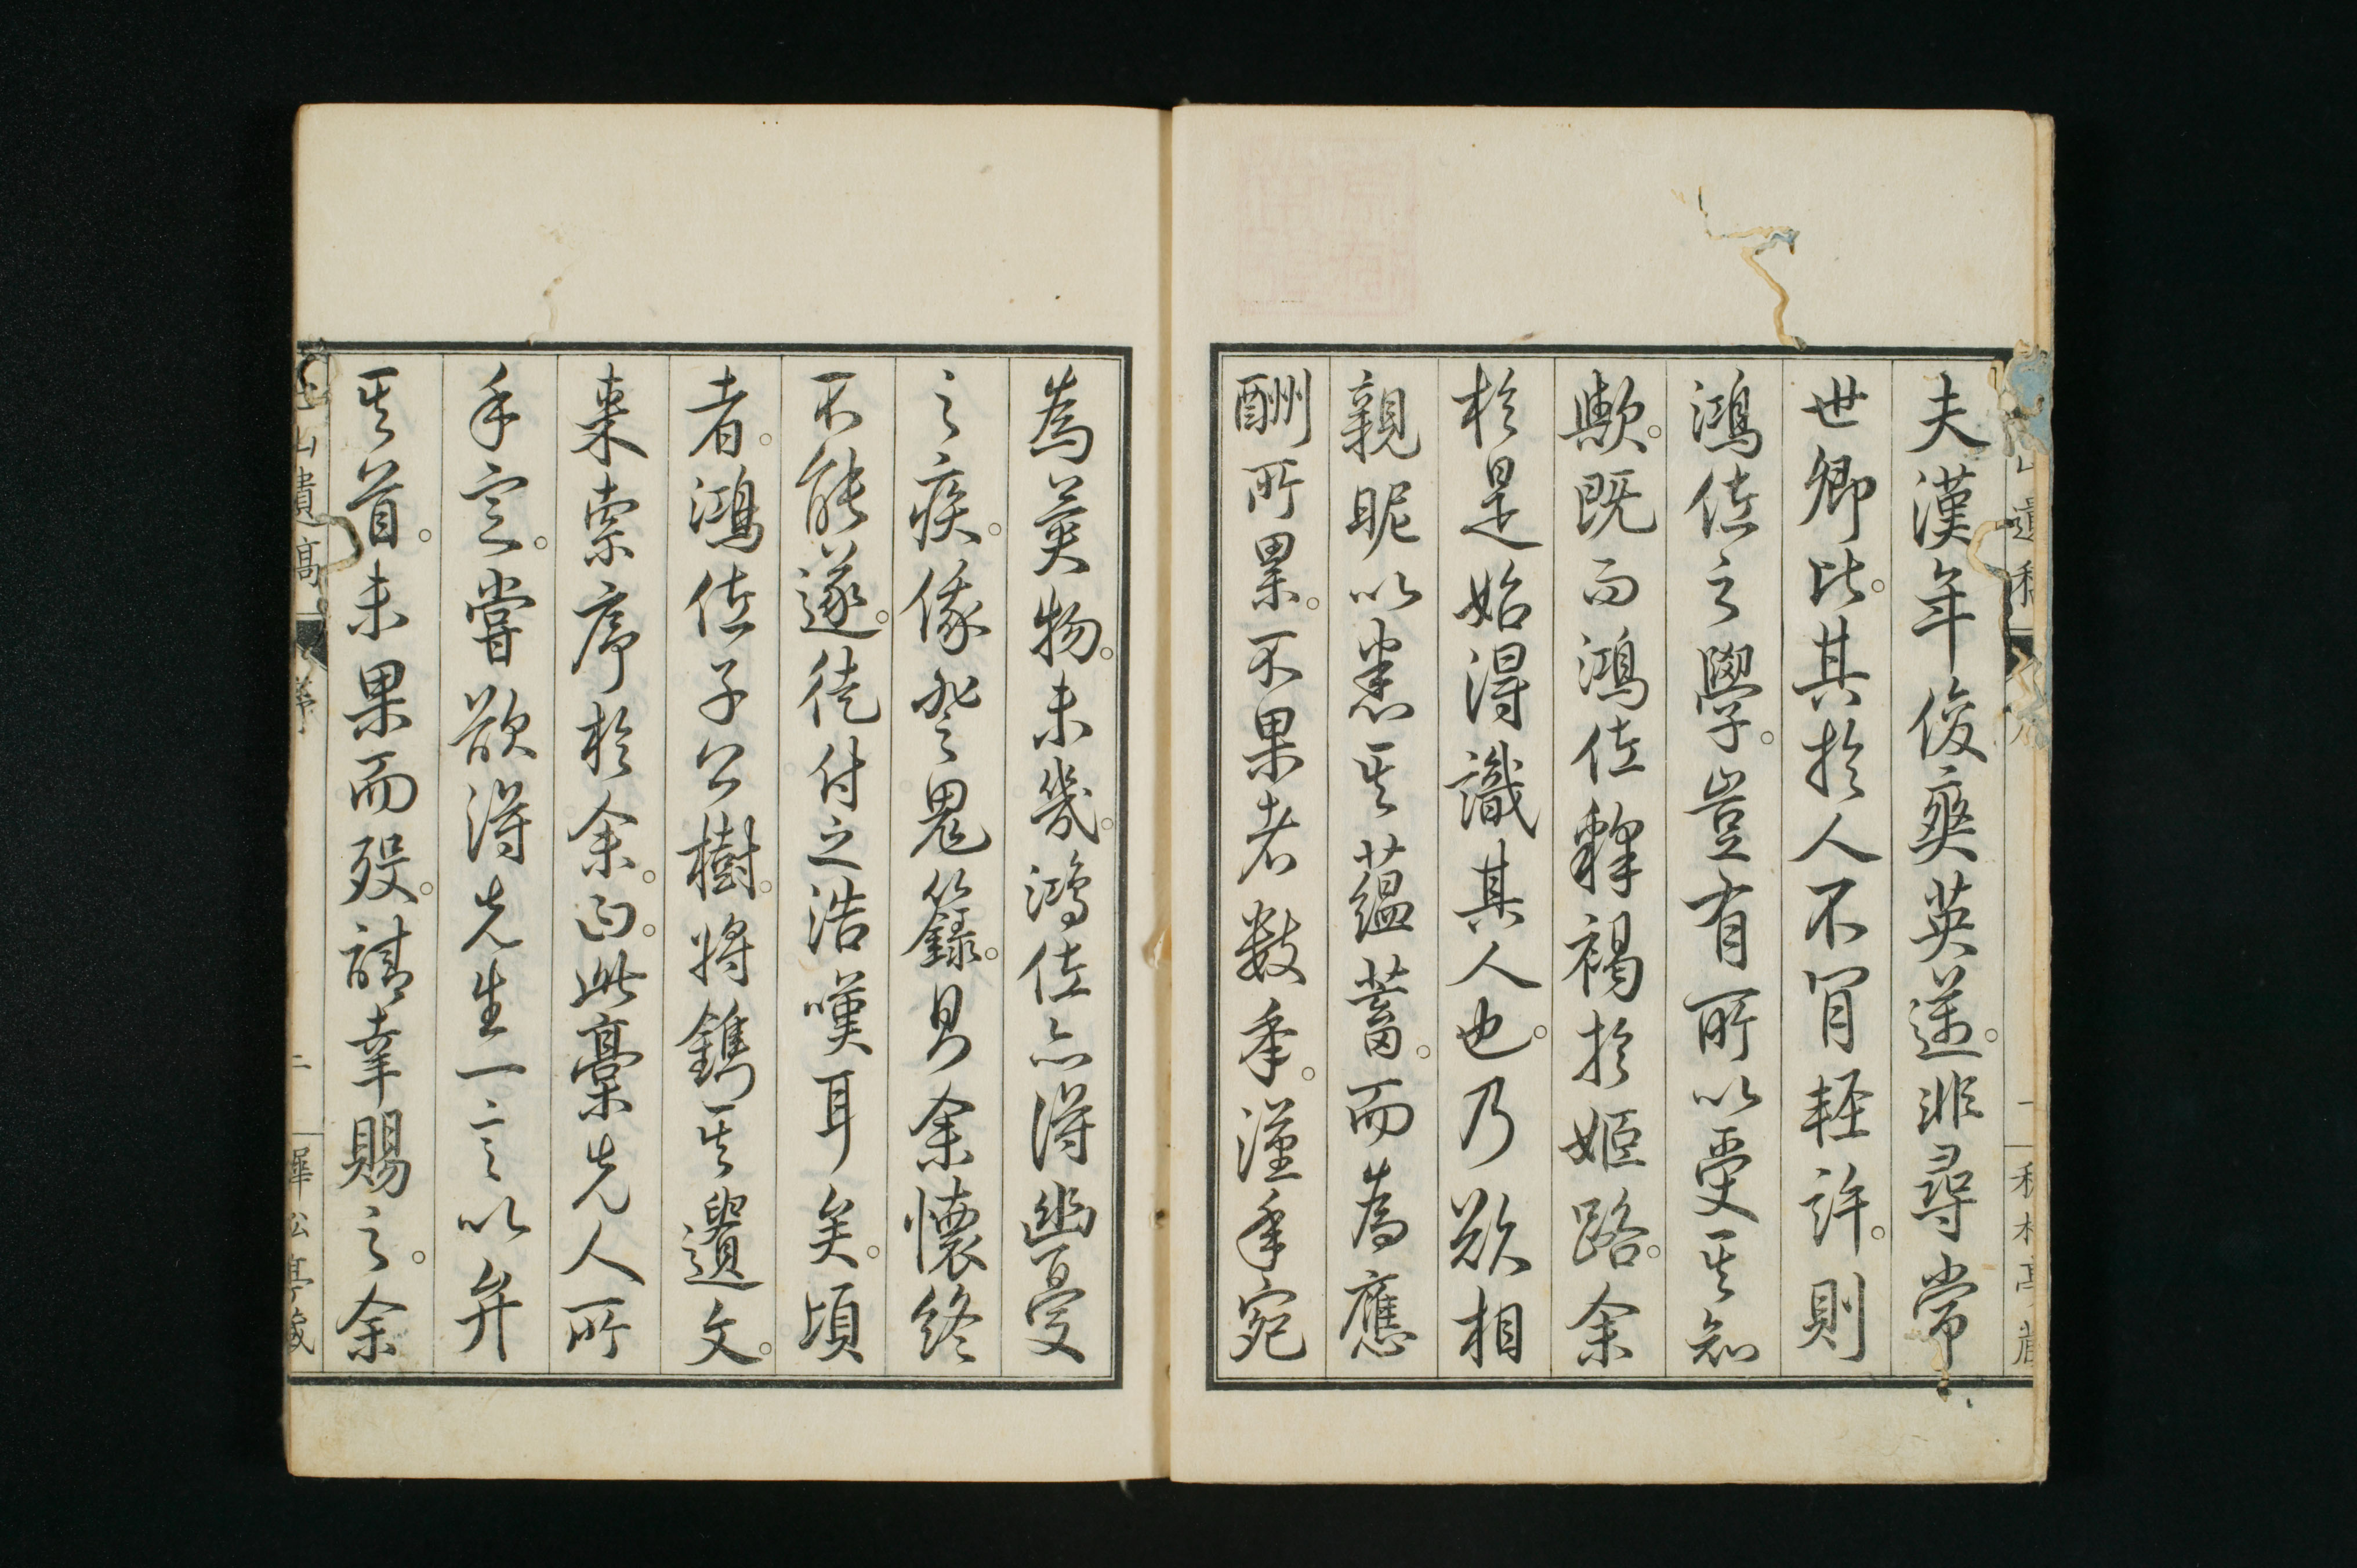 夫漢年俊爽英邁。非尋常
世卿比。其於人不肯輕許。則
鴻佐之學。豈有所以受其知
歟。既而鴻佐釋褐於姬路。余
於是始得識其人也。乃欲相
親昵以悉其蘊蓄。而為應
酬所累。不果者數年。漢年宛
為異物。未幾。鴻佐亦得幽憂
之疾。倐登鬼籙。則余懷終
不能遂。徒付之浩嘆耳矣。頃
者。鴻佐子公樹。將鐫其遺文。
來索序於余。曰。此稾先人所
手定。嘗欲得先生一言以弁
其首。未果而歿。請幸賜之。余
山遺稿
序
二